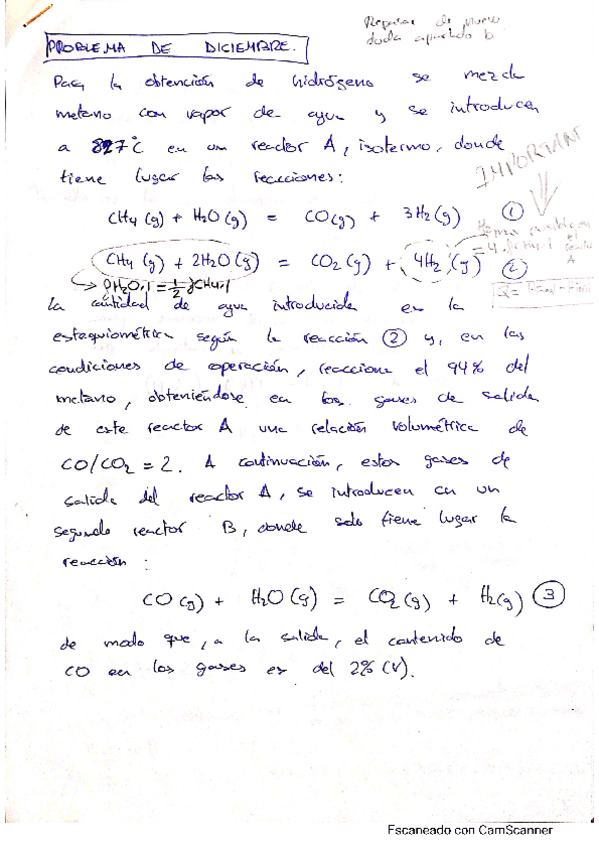 Repasar de nuevo
duda apartado b
PROBLEMA DE DICIEMBRE.
Para la obtención de hidrógeno se mezcla
metano con vapor de agua y se introducen
a 827°C en un reactor A, isotermo, donde
tiene lugar las reacciones:
IMPORTANT
CH4 (g) + H2O (g) = CO(g) + 3H2 (g) ①
CH4 (g) + 2H2O (g) = CO2 (g) + 4H2 (g) ②
La cantidad de agua introducida en la
estequiométrica según la reacción ② y, en las
condiciones de operación, reacciona el 94% del
metano, obteniéndose en los gases de salida
de este reactor A una relación volumétrica de
CO/CO2 = 2. A continuación, estos gases de
salida del reactor A, se introducen en un
segundo reactor B, donde solo tiene lugar la
reacción :
CO (g) + H2O (g) = CO2 (g) + H2(g) ③
de modo que, a la salida, el contenido de
CO en los gases es del 2% (V).
Escaneado con CamScanner